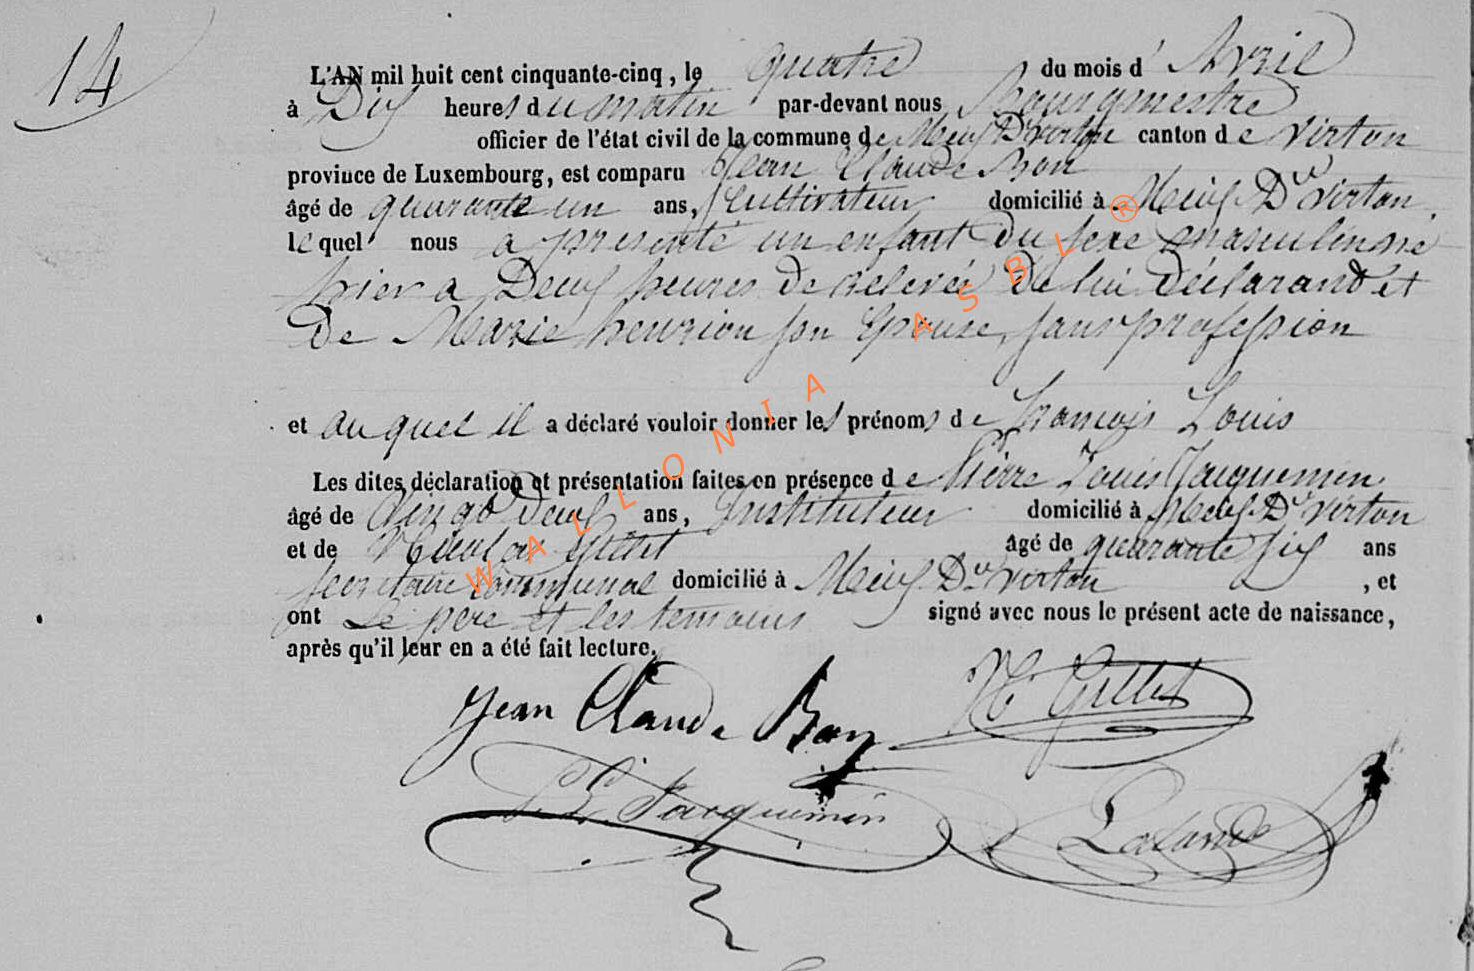 14
L'AN mil huit cent cinquante-cinq, le quatre du mois d' Avril
à Dix heures du matin par-devant nous Bourgmestre
officier de l'état civil de la commune de Meix Dt virton canton de virton
province de Luxembourg, est comparu Jean Claude Bon
âgé de quarante un ans, Cultivateur domicilié à Meix Dt virton.
lequel nous a présenté un enfant du sexe masculin né
hier a Deux heures de relevée de lui déclarant et
De Marie henrion son Epouse, sans profession
et auquel il a déclaré vouloir donner les prénoms de francois Louis
Les dites déclaration et présentation faites en présence de Pierre Louis Jacquemin.
âgé de Vingt Deux ans, Instituteur domicilié à Meix Dt virton
et de Nicolas Gillet âgé de quarante six ans
secretaire communal domicilié à Meix Dt virton , et
ont Le père et les temoins signé avec nous le présent acte de naissance,
après qu'il leur en a été fait lecture.
Jean Claude Bon N Gillet
P L Jacquemin Lalande
WALLONIA ASBL ®